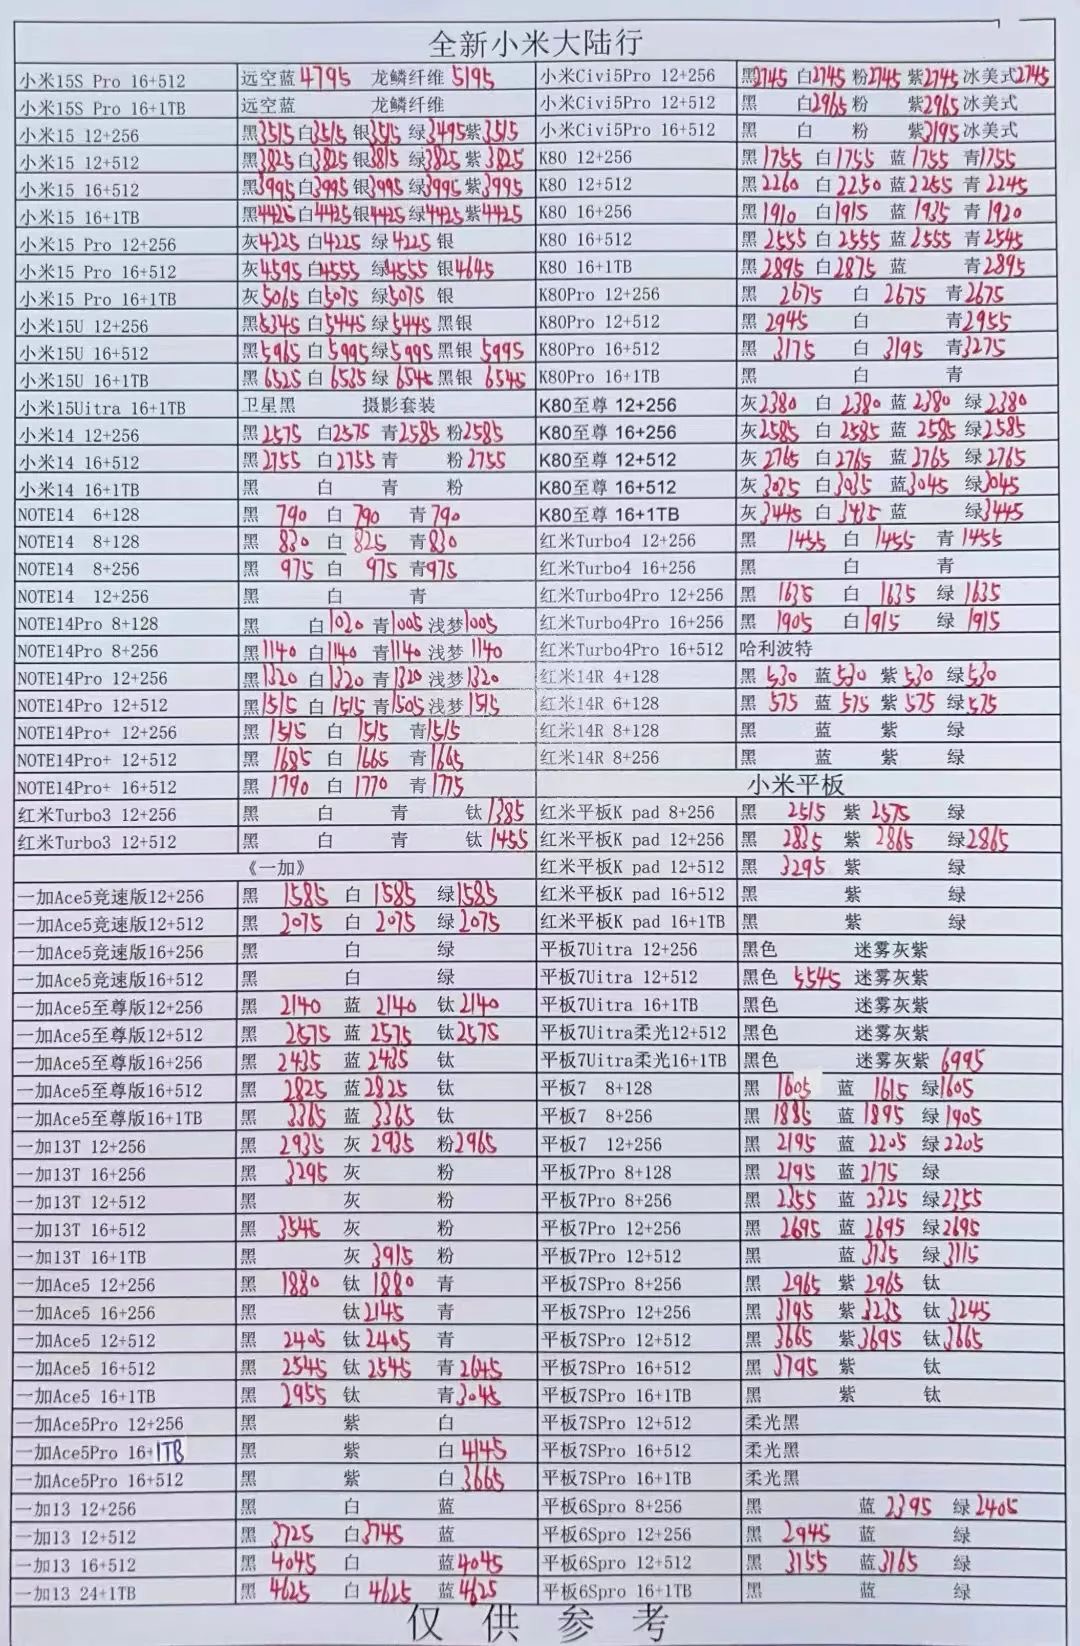 全新小米大陆行
小米15S Pro 16+512 远空蓝 4795 龙鳞纤维 5195
小米15S Pro 16+1TB 远空蓝 龙鳞纤维
小米15 12+256 黑3515 白3515 银3515 绿3495 紫3515
小米15 12+512 黑3825 白3825 银3815 绿3825 紫3825
小米15 16+512 黑3995 白3995 银3995 绿3995 紫3995
小米15 16+1TB 黑4425 白4425 银4425 绿4425 紫4425
小米15 Pro 12+256 灰4225 白4225 绿4225 银
小米15 Pro 16+512 灰4595 白4555 绿4555 银4645
小米15 Pro 16+1TB 灰5065 白5075 绿5075 银
小米15U 12+256 黑5345 白5445 绿5445 黑银
小米15U 16+512 黑5965 白5995 绿5995 黑银 5995
小米15U 16+1TB 黑6525 白6535 绿6545 黑银 6545
小米15Uitra 16+1TB 卫星黑 摄影套装
小米14 12+256 黑2575 白2575 青2585 粉2585
小米14 16+512 黑2755 白2755 青 粉2755
小米14 16+1TB 黑 白 青 粉
NOTE14 6+128 黑 790 白 790 青790
NOTE14 8+128 黑 830 白 825 青830
NOTE14 8+256 黑 975 白 975 青975
NOTE14 12+256 黑 白 青
NOTE14Pro 8+128 黑 白1020 青1005 浅梦1005
NOTE14Pro 8+256 黑1140 白1140 青1140 浅梦1140
NOTE14Pro 12+256 黑1320 白1320 青1320 浅梦1320
NOTE14Pro 12+512 黑1515 白1515 青1505 浅梦1515
NOTE14Pro+ 12+256 黑1515 白 1515 青1515
NOTE14Pro+ 12+512 黑1685 白 1665 青1665
NOTE14Pro+ 16+512 黑1790 白 1770 青1775
红米Turbo3 12+256 黑 白 青 钛1385
红米Turbo3 12+512 黑 白 青 钛1455
《一加》
一加Ace5竞速版12+256 黑 1585 白 1585 绿1585
一加Ace5竞速版12+512 黑 2075 白 2075 绿2075
一加Ace5竞速版16+256 黑 白 绿
一加Ace5竞速版16+512 黑 白 绿
一加Ace5至尊版12+256 黑 2140 蓝 2140 钛2140
一加Ace5至尊版12+512 黑 2575 蓝 2575 钛2575
一加Ace5至尊版16+256 黑 2435 蓝2435 钛
一加Ace5至尊版16+512 黑 2825 蓝2825 钛
一加Ace5至尊版16+1TB 黑 3365 蓝 3365 钛
一加13T 12+256 黑 2935 灰 2935 粉2965
一加13T 16+256 黑 3295 灰 粉
一加13T 12+512 黑 灰 粉
一加13T 16+512 黑 3545 灰 粉
一加13T 16+1TB 黑 灰 3915 粉
一加Ace5 12+256 黑 1880 钛 1880 青
一加Ace5 16+256 黑 钛2145 青
一加Ace5 12+512 黑 2405 钛2405 青
一加Ace5 16+512 黑 2545 钛 2545 青2645
一加Ace5 16+1TB 黑 2955 钛 青3045
一加Ace5Pro 12+256 黑 紫 白
一加Ace5Pro 16+1TB 黑 紫 白4145
一加Ace5Pro 16+512 黑 紫 白3665
一加13 12+256 黑 白 蓝
一加13 12+512 黑 3725 白3745 蓝
一加13 16+512 黑 4045 白 蓝4045
一加13 24+1TB 黑 4625 白 4625 蓝4625
小米Civi5Pro 12+256 黑2745 白2745 粉2745 紫2745 冰美式2745
小米Civi5Pro 12+512 黑 白2965 粉 紫2965 冰美式
小米Civi5Pro 16+512 黑 白 粉 紫3195 冰美式
K80 12+256 黑1755 白1755 蓝1755 青1755
K80 12+512 黑2260 白2250 蓝2255 青2245
K80 16+256 黑1910 白1915 蓝1935 青1920
K80 16+512 黑2555 白2555 蓝2555 青2545
K80 16+1TB 黑2895 白2875 蓝 青2895
K80Pro 12+256 黑 2675 白 2675 青2675
K80Pro 12+512 黑2945 白 青2955
K80Pro 16+512 黑 3175 白 3195 青3275
K80Pro 16+1TB 黑 白 青
K80至尊 12+256 灰2380 白 2380 蓝 2380 绿2380
K80至尊 16+256 灰2585 白 2585 蓝 2585 绿2585
K80至尊 12+512 灰2765 白2765 蓝2765 绿2765
K80至尊 16+512 灰3035 白3035 蓝3045 绿3045
K80至尊 16+1TB 灰3445 白3435 蓝 绿3445
红米Turbo4 12+256 黑 1455 白 1455 青1455
红米Turbo4 16+256 黑 白 青
红米Turbo4Pro 12+256 黑 1635 白 1635 绿1635
红米Turbo4Pro 16+256 黑 1905 白1915 绿1915
红米Turbo4Pro 16+512 哈利波特
红米14R 4+128 黑530 蓝530 紫530 绿530
红米14R 6+128 黑575 蓝575 紫575 绿575
红米14R 8+128 黑 蓝 紫 绿
红米14R 8+256 黑 蓝 紫 绿
小米平板
红米平板K pad 8+256 黑 2515 紫 2575 绿
红米平板K pad 12+256 黑 2835 紫 2865 绿2865
红米平板K pad 12+512 黑 3295 紫 绿
红米平板K pad 16+512 黑 紫 绿
红米平板K pad 16+1TB 黑 紫 绿
平板7Uitra 12+256 黑色 迷雾灰紫
平板7Uitra 12+512 黑色 5545 迷雾灰紫
平板7Uitra 16+1TB 黑色 迷雾灰紫
平板7Uitra柔光12+512 黑色 迷雾灰紫
平板7Uitra柔光16+1TB 黑色 迷雾灰紫6995
平板7 8+128 黑 1605 蓝 1615 绿1605
平板7 8+256 黑 1885 蓝 1895 绿1905
平板7 12+256 黑 2195 蓝 2205 绿2205
平板7Pro 8+128 黑 2195 蓝2175 绿
平板7Pro 8+256 黑 2355 蓝 2325 绿2355
平板7Pro 12+256 黑 2695 蓝 2695 绿2695
平板7Pro 12+512 黑 蓝3135 绿3115
平板7SPro 8+256 黑 2965 紫2965 钛
平板7SPro 12+256 黑 3195 紫3235 钛3245
平板7SPro 12+512 黑 3665 紫3695 钛3665
平板7SPro 16+512 黑 3795 紫 钛
平板7SPro 16+1TB 黑 紫 钛
平板7SPro 12+512 柔光黑
平板7SPro 16+512 柔光黑
平板7SPro 16+1TB 柔光黑
平板6Spro 8+256 黑 蓝 2395 绿2405
平板6Spro 12+256 黑 2945 蓝 绿
平板6Spro 12+512 黑 3155 蓝3165 绿
平板6Spro 16+1TB 黑 蓝 绿
仅供参考